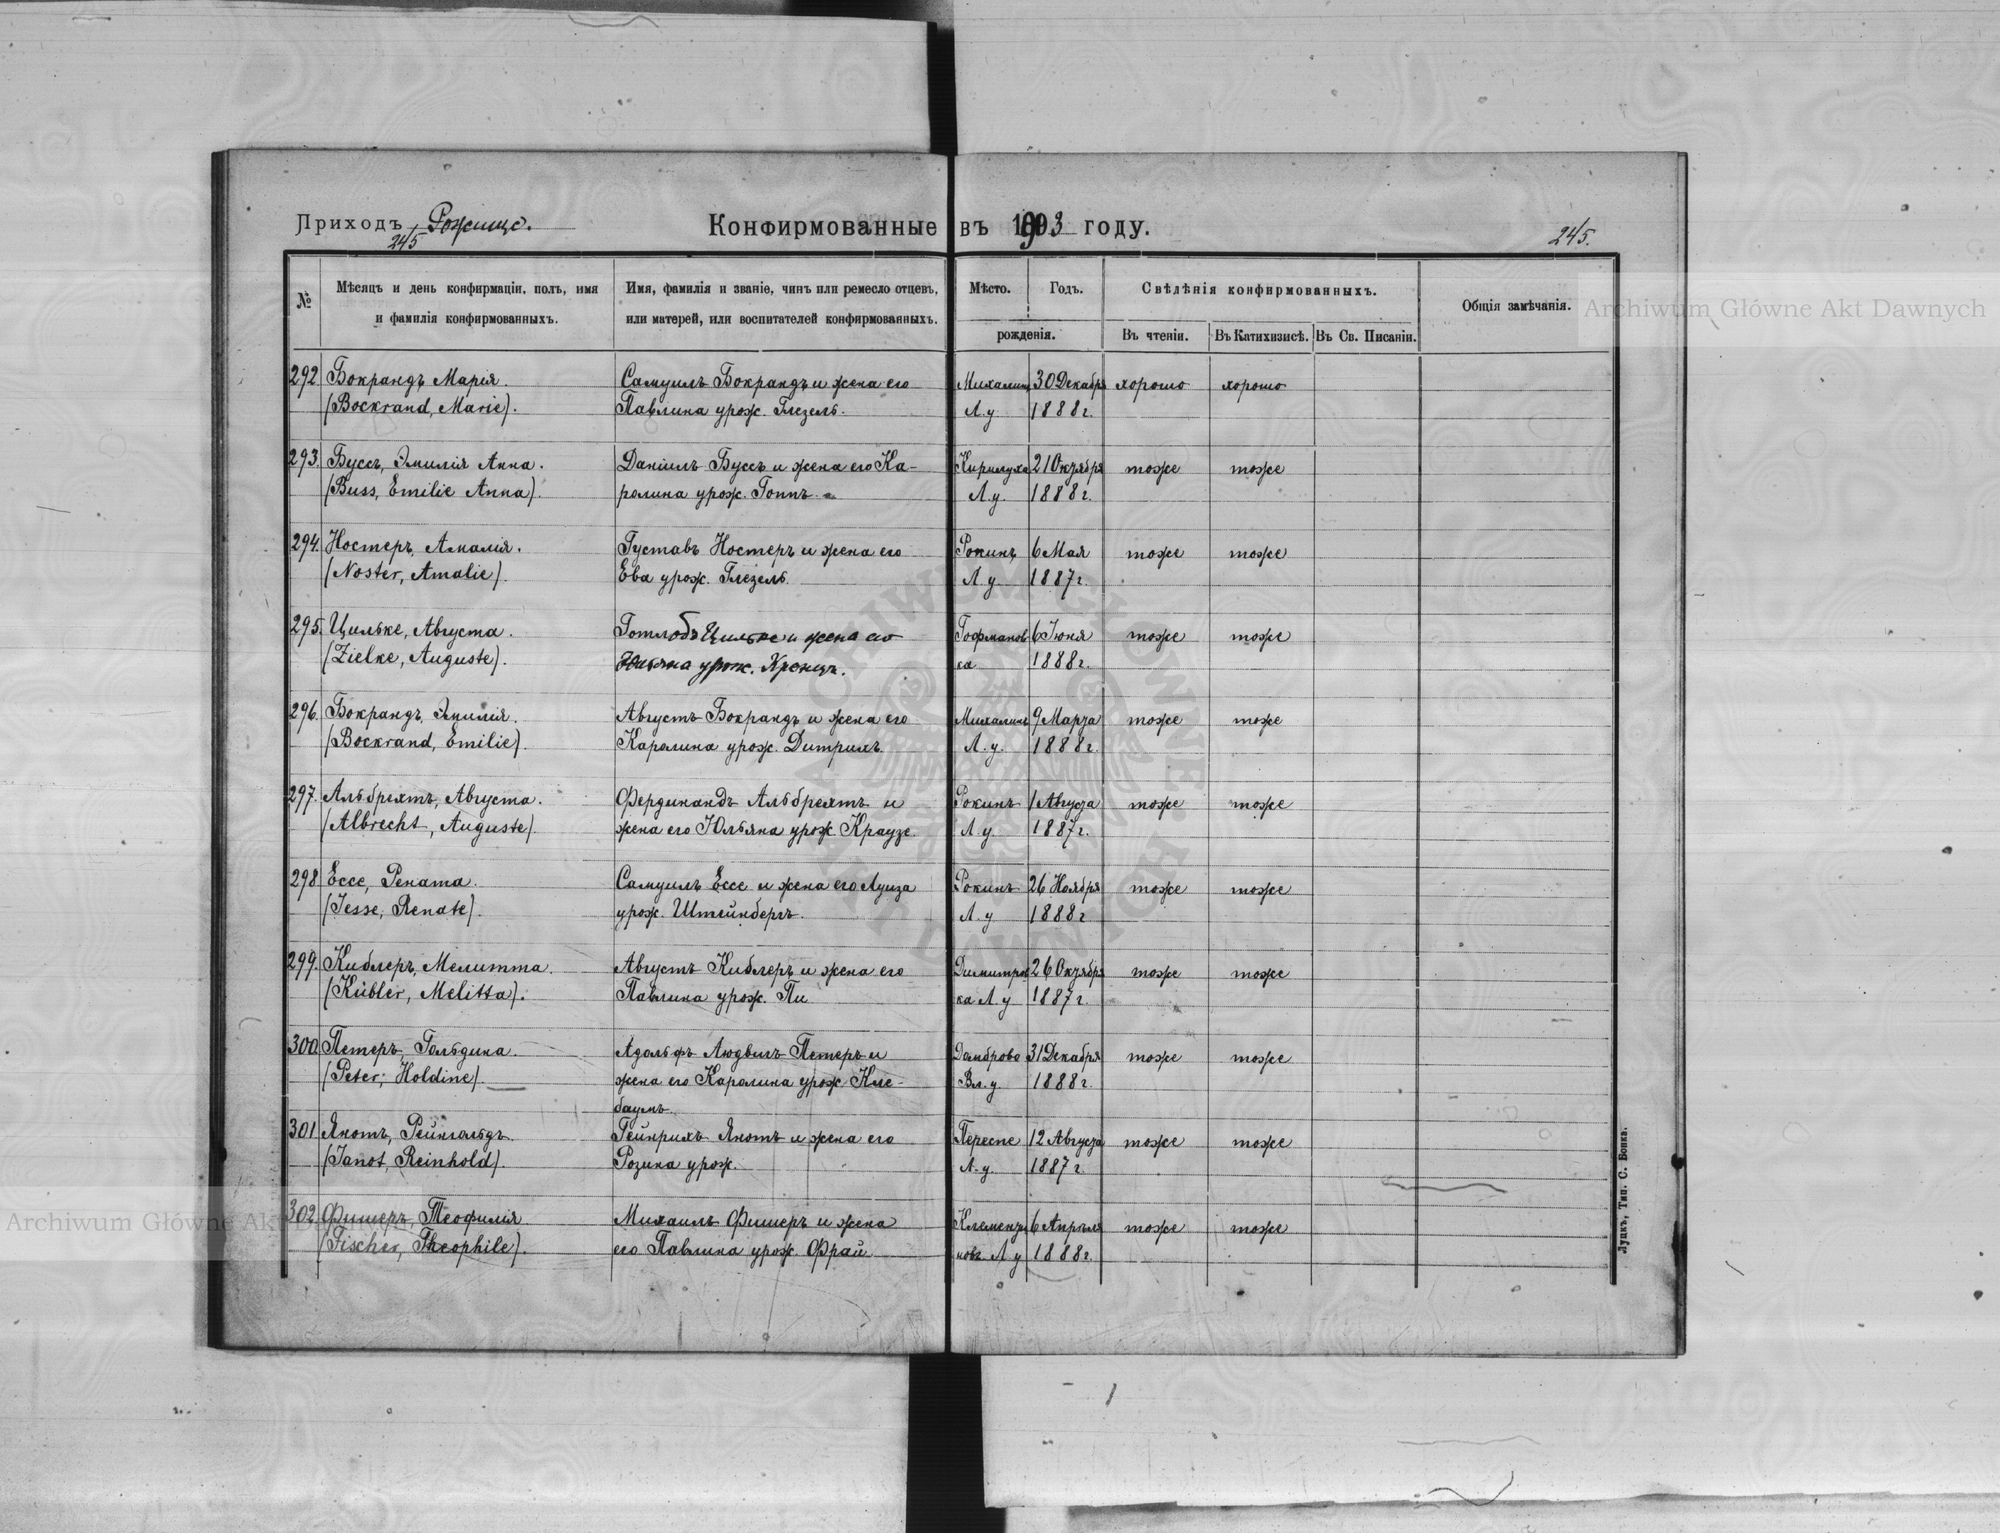 Приходъ Рожище.
245
Конфирмованные въ 1903 году.
245.
№
Мѣсяцъ и день конфирмаціи, полъ, имя
и фамилія конфирмованныхъ.
Имя, фамилія и званіе, чинъ или ремесло отцевъ,
или матерей, или воспитателей конфирмованныхъ.
Мѣсто.
Годъ.
рожденія.
Свѣдѣнія конфирмованныхъ.
Въ чтеніи.
Въ Катихизисѣ.
Въ Св. Писаніи.
Общія замѣчанія.
Archiwum Główne Akt Dawnych
292 Бокрандъ Марія. Самуилъ Бокрандъ и жена его Михалин 30 Декабря хорошо хорошо
(Bockrand, Marie). Павлина урож. Глезель. Л.у. 1888г.
293. Буссъ, Эмилія Анна. Даніилъ Буссъ и жена его Ка- Кирилуха 21 Октября тоже тоже
(Buss, Emilie Anna). ролина урож. Гоппъ. Л.у. 1888г.
294. Ностеръ, Амалія. Густавъ Ностеръ и жена его Рокинъ 6 Мая тоже тоже
(Noster, Amalie). Ева урож. Глезель. Л.у. 1887г.
295. Цильке, Августа. Готлобъ Цильке и жена его Гофманов 6 Іюня тоже тоже
(Zielke, Auguste). Юльяна урож. Кренцъ. ка 1888г.
296. Бокрандъ, Эмилія. Августъ Бокрандъ и жена его Михалинъ 9 Марта тоже тоже
(Bockrand, Emilie). Каролина урож. Дитрихъ. Л.у. 1888г.
297. Альбрехтъ, Августа. Фердинандъ Альбрехтъ и Рокинъ 1 Августа тоже тоже
(Albrecht, Auguste). жена его Юльяна урож. Краузе. Л.у. 1887г.
298 Ессе, Рената. Самуилъ Ессе и жена его Луиза Рокинъ 26 Ноября тоже тоже
(Jesse, Renate). урож. Штейнбергъ. Л.у. 1888г.
299. Киблеръ, Мелитта. Августъ Киблеръ и жена его Димитров 26 Октября тоже тоже
(Kübler, Melitta). Павлина урож. Пи ка Л.у 1887г.
300 Петеръ, Гольдина. Адольфъ Людвигъ Петеръ и Домброва 31 Декабря тоже тоже
(Peter, Holdine). жена его Каролина урож. Кле- Вл.у. 1888г.
баумъ.
301 Янотъ, Рейнгольдъ. Гейнрихъ Янотъ и жена его Переспе 12 Августа тоже тоже
(Janot, Reinhold). Розина урож. Л.у. 1887г.
302 Фишеръ, Теофилія Михаилъ Фишеръ и жена Клементи 6 Апрѣля тоже тоже
(Fischer, Theophile). его Павлина урож. Фрай новъ Л.у 1888г.
Луцкъ, Тип. С. Бонка.
Archiwum Główne Akt Dawnych
ARCHIWUM GŁÓWNE AKT DAWNYCH